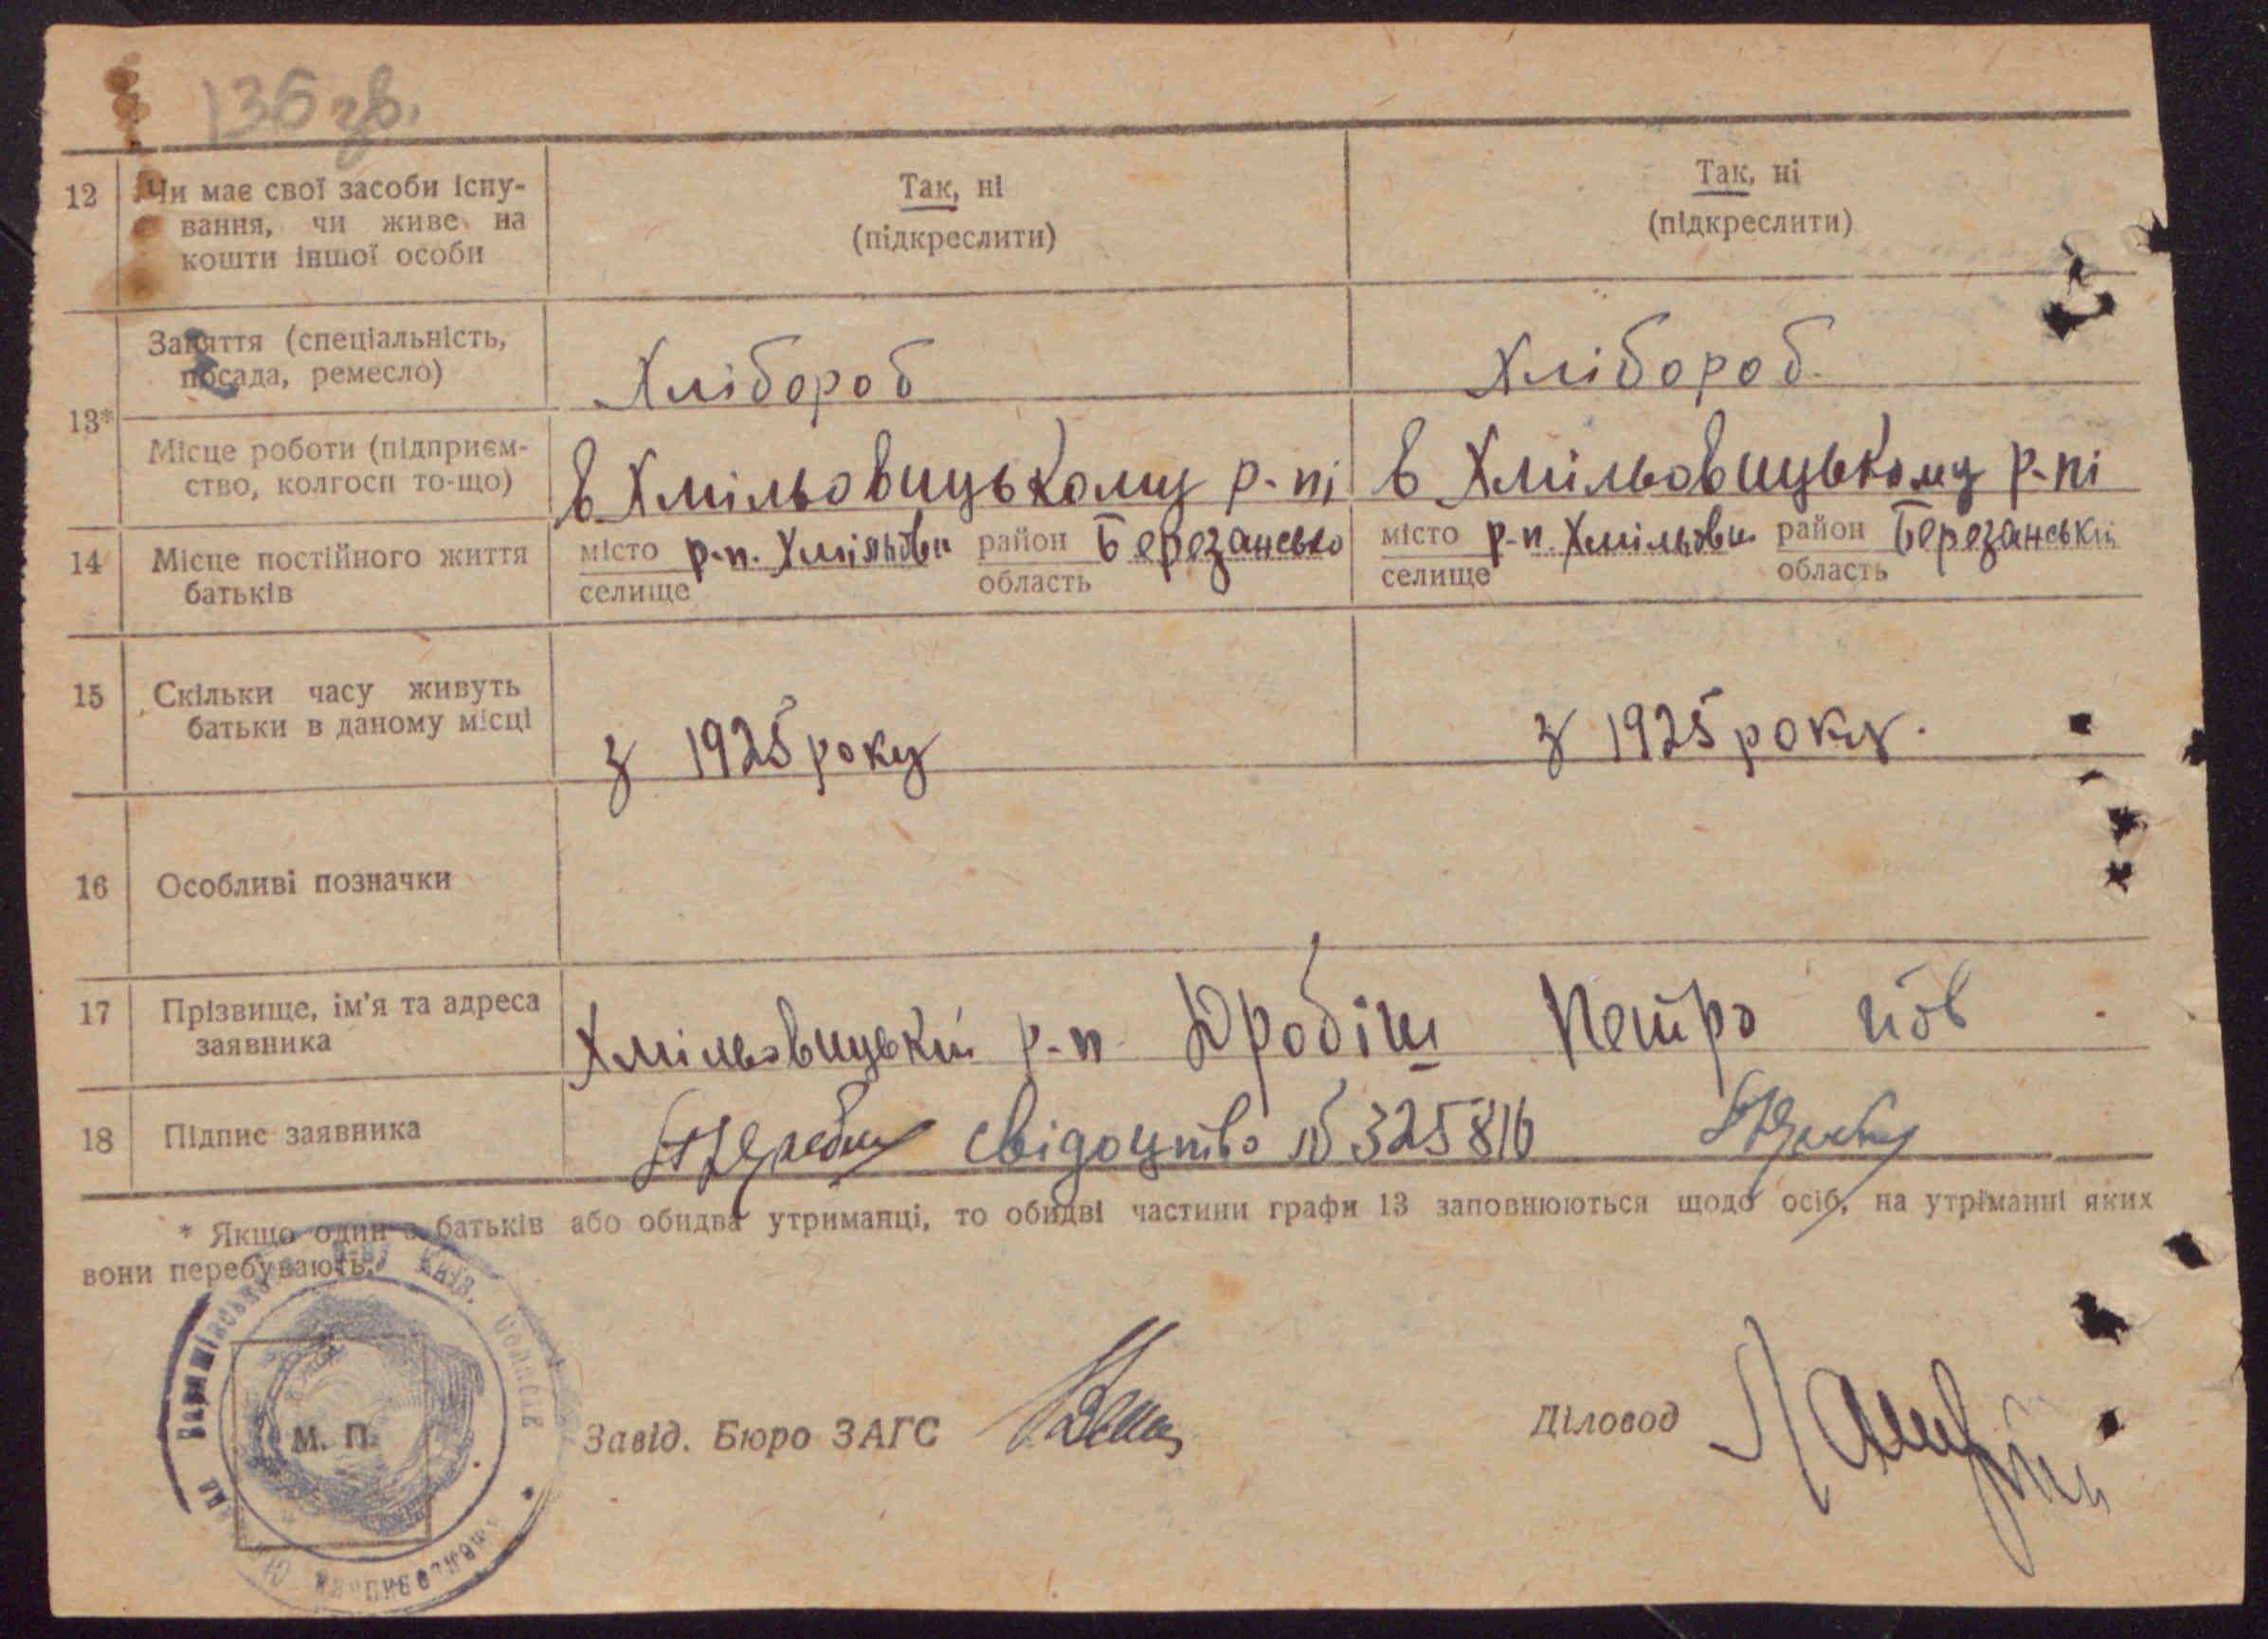 136 зв.
12 Чи має свої засоби існу-
вання, чи живе на
кошти іншої особи
Так, ні
(підкреслити)
Так, ні
(підкреслити)
13*
Заняття (спеціальність,
посада, ремесло)
Хлібороб
Хлібороб.
Місце роботи (підприєм-
ство, колгосп то-що)
в Хмільовицькому р-пі
в Хмільовицькому р-пі
14 Місце постійного життя
батьків
місто р-п. Хмільови район Березансько
селище область
місто р-п. Хмільови район Березанський
селище область
15 Скільки часу живуть
батьки в даному місці
з 1925 року
з 1925 року.
16 Особливі позначки
17 Прізвище, ім'я та адреса
заявника
Хмільовицький р-п Дробіш Петро Йов
18 Підпис заявника
свідоцтво № 325816
* Якщо один з батьків або обидва утриманці, то обидві частини графи 13 заповнюються щодо осіб, на утріманні яких
вони перебувають.
М. П.
Завід. Бюро ЗАГС
Діловод